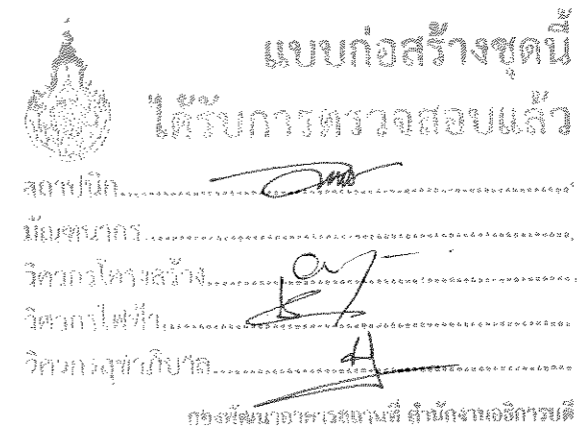 แบบก่อสร้างชุดนี้
ได้รับการตรวจสอบแล้ว
สถาปนิก
มัณฑนากร
วิศวกรโครงสร้าง
วิศวกรไฟฟ้า
วิศวกรสุขาภิบาล
กองพัฒนาอาคารสถานที่ สำนักงานอธิการบดี